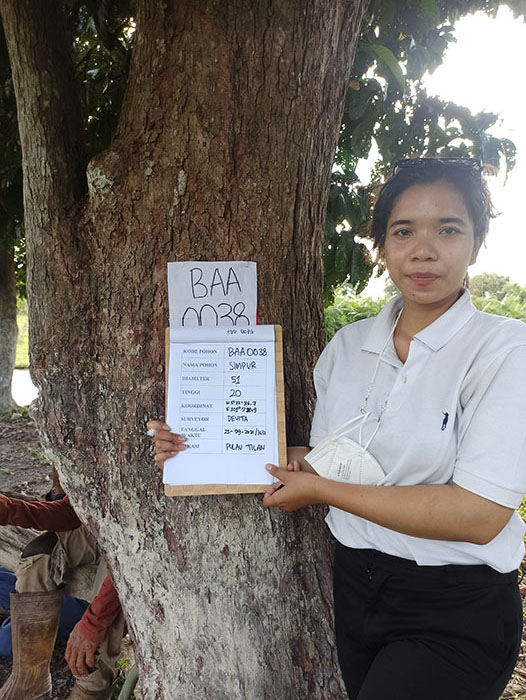 BAA
0038
KODE POHON BAA0038
NAMA POHON SIMPUR
DIAMETER 51
TINGGI 20
KOORDINAT
SURVEYOR DEVITA
TANGGAL
WAKTU
PULAU TILAN